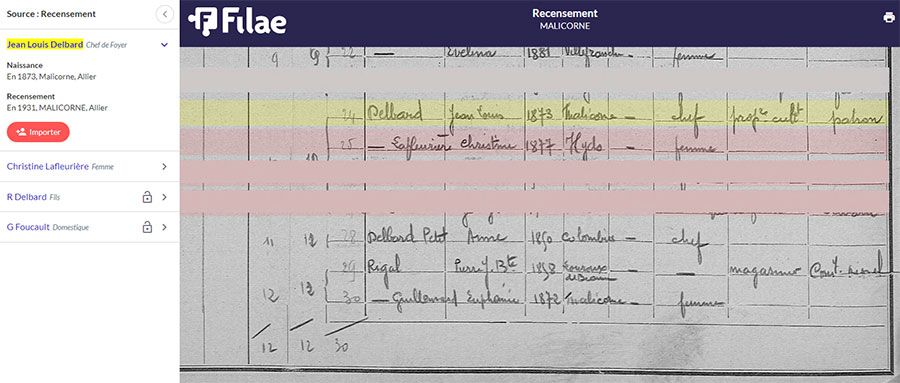 Source : Recensement
Jean Louis Delbard Chef de Foyer
Naissance
En 1873, Malicorne, Allier
Recensement
En 1931, MALICORNE, Allier
Importer
Christine Lafleurière Femme
R Delbard Fils
G Foucault Domestique
Filae
Recensement
MALICORNE
9 9 22 — Evelina 1881 Villefranche femme
24 Delbard Jean Louis 1873 Malicorne — chef prop^re cult^r patron
25 — Lafleurière Christine 1877 Hyds — femme
11 12 28 Delbard Petit Anne 1850 Colombier — chef
29 Rigal Pierre J. Bte — magasinier
12 12 30 — Guillemard Euphémie 1872 Malicorne — femme
12 12 30